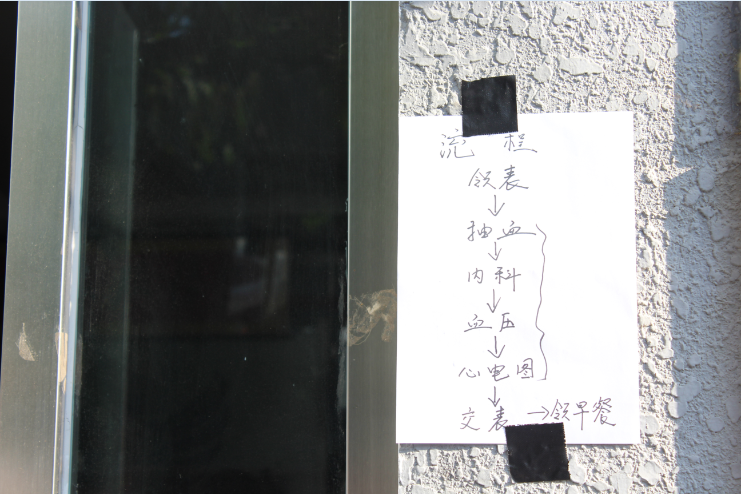 流程
领表
↓
抽血
↓
内科
↓
血压
↓
心电图
↓
交表→领早餐